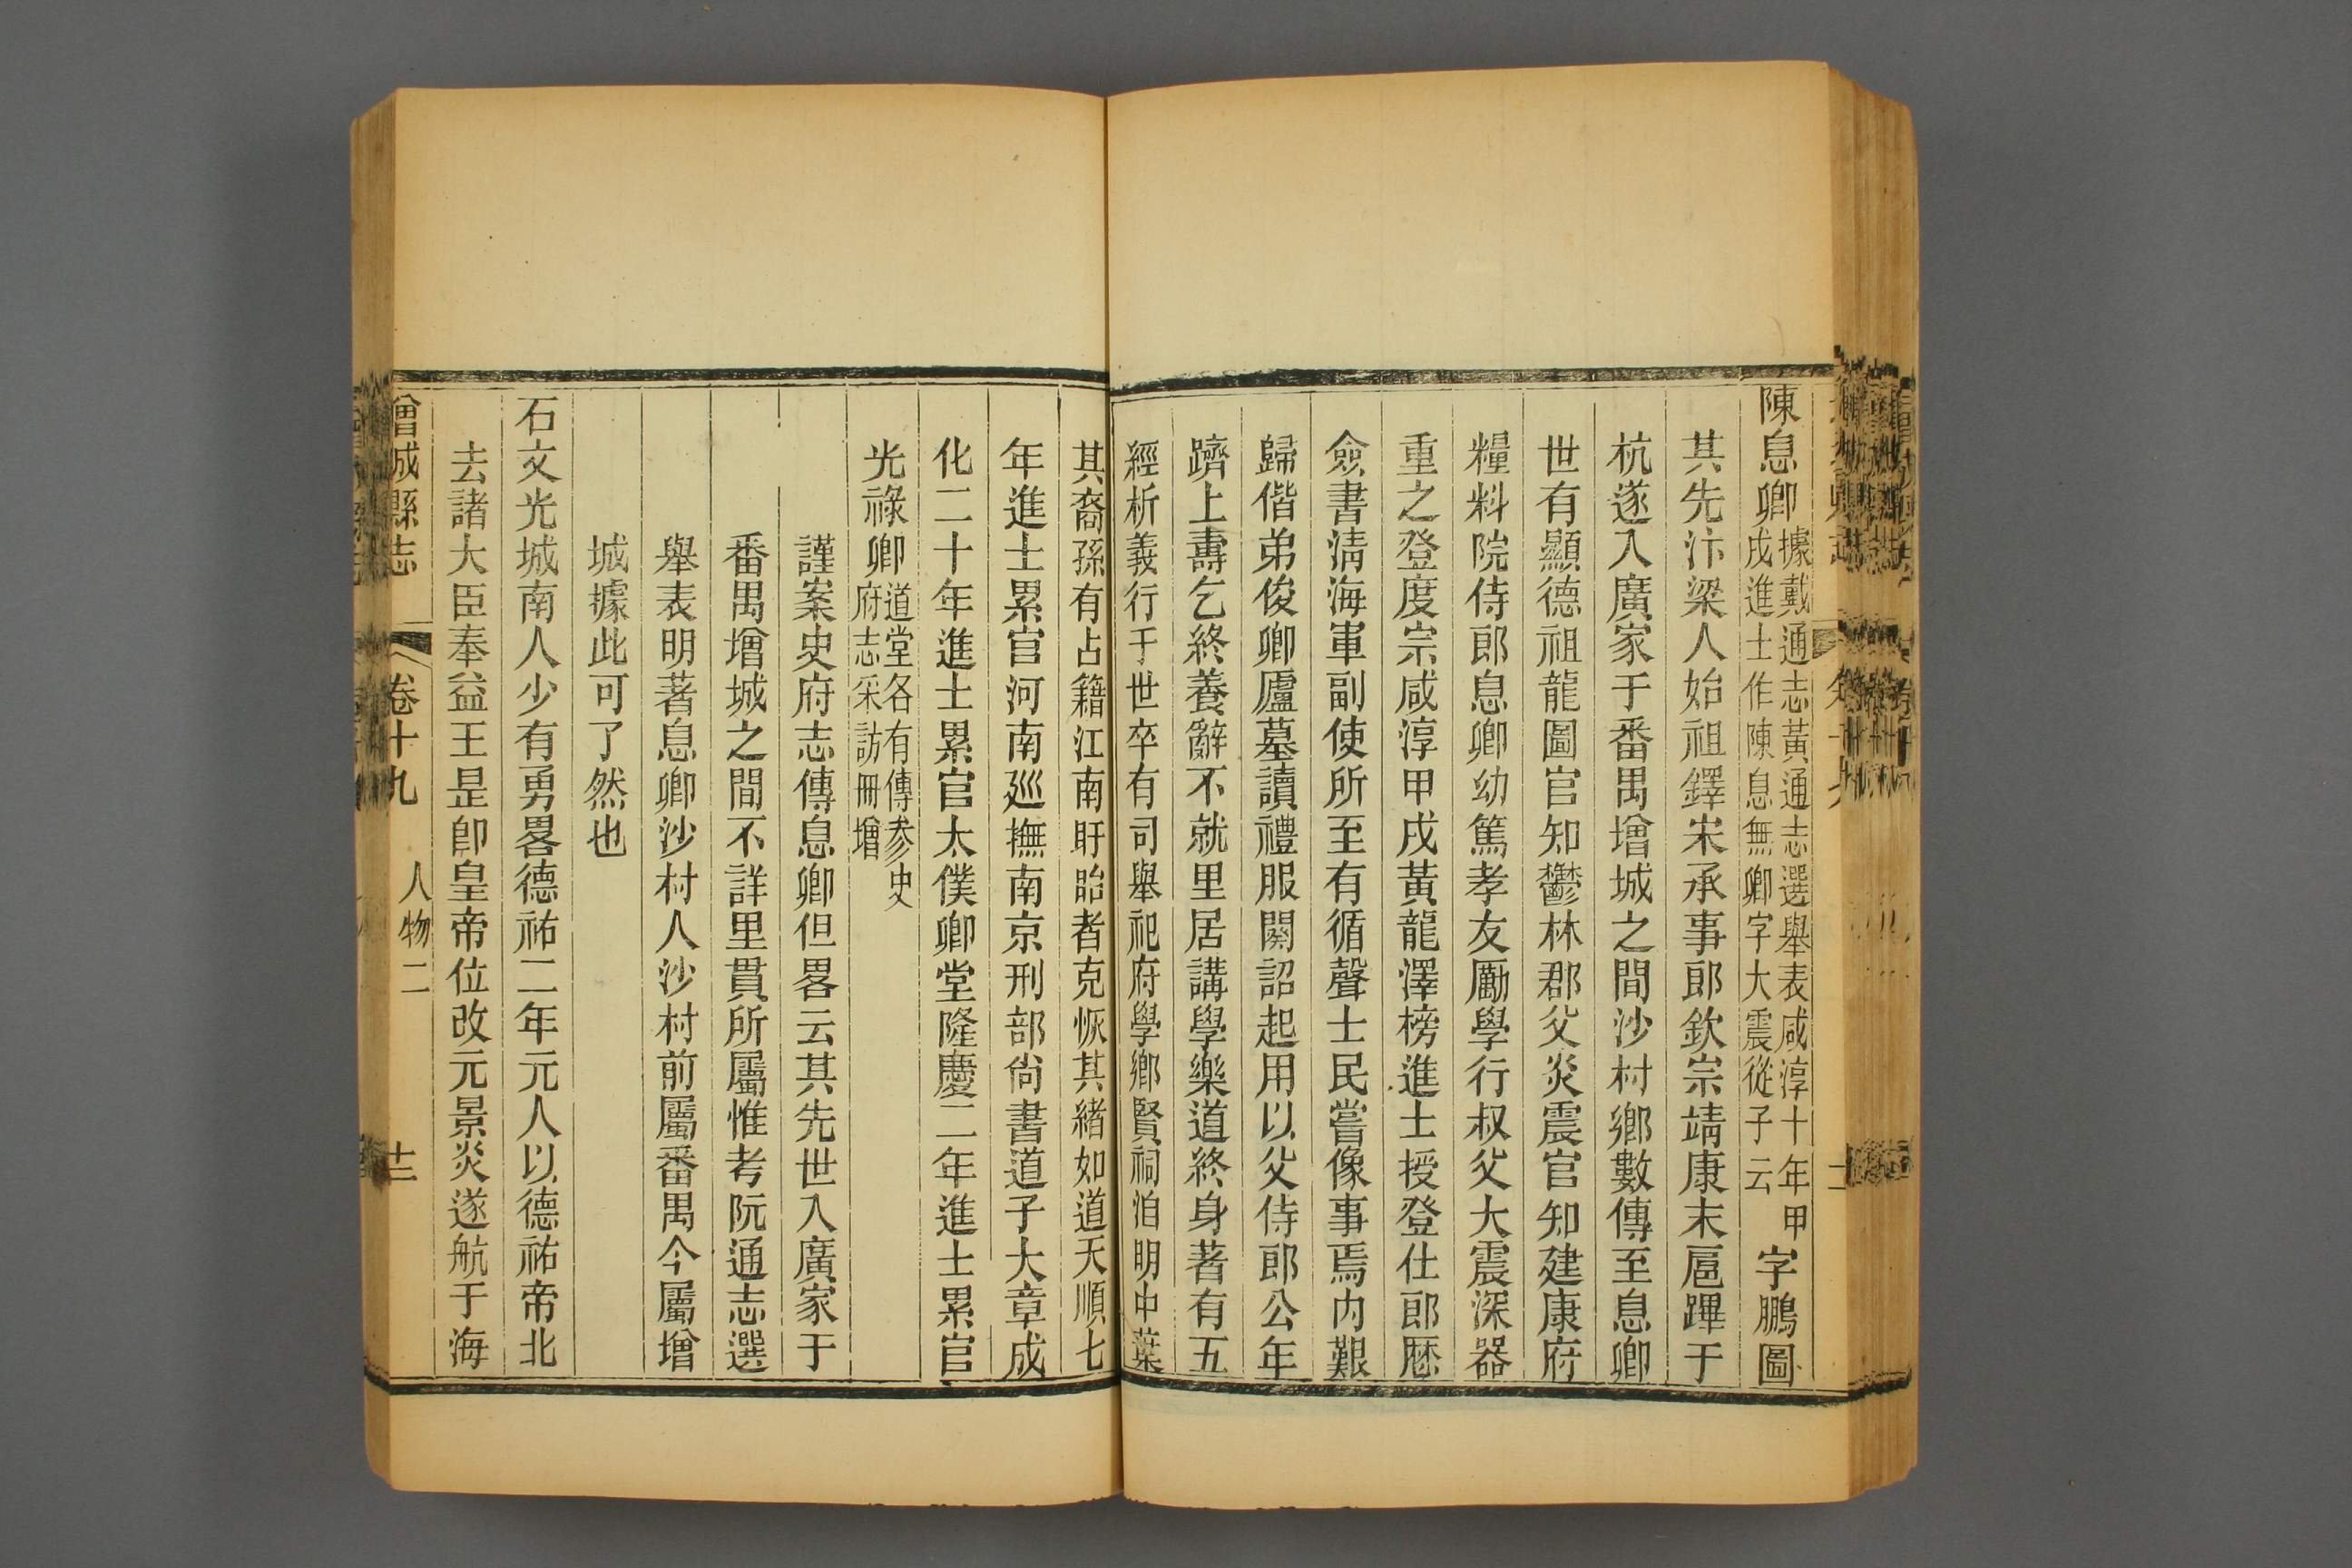 陳息卿據戴通志黃通志選舉表咸淳十年甲戌進士作陳息無卿字大震從子云字鵬圖
其先汴梁人始祖鐸宋承事郎欽宗靖康末扈蹕于
杭遂入廣家于番禺增城之間沙村鄉數傳至息卿
世有顯德祖龍圖官知鬱林郡父炎震官知建康府
糧料院侍郎息卿幼篤孝友勵學行叔父大震深器
重之登度宗咸淳甲戌黃龍澤榜進士授登仕郎歷
僉書清海軍副使所至有循聲士民嘗像事焉內艱
歸偕弟俊卿廬墓讀禮服闋詔起用以父侍郎公年
躋上壽乞終養辭不就里居講學樂道終身著有五
經析義行于世卒有司舉祀府學鄉賢祠洎明中葉
其裔孫有占籍江南盱眙者克恢其緒如道天順七
年進士累官河南廵撫南京刑部尚書道子大章成
化二十年進士累官太僕卿堂隆慶二年進士累官
光祿卿道堂各有傳參史府志采訪冊增
謹案史府志傳息卿但畧云其先世入廣家于
番禺增城之間不詳里貫所屬惟考阮通志選
舉表明著息卿沙村人沙村前屬番禺今屬增
城據此可了然也
石文光城南人少有勇畧德祐二年元人以德祐帝北
去諸大臣奉益王昰卽皇帝位改元景炎遂航于海
增城縣志 卷十九 人物二 十二